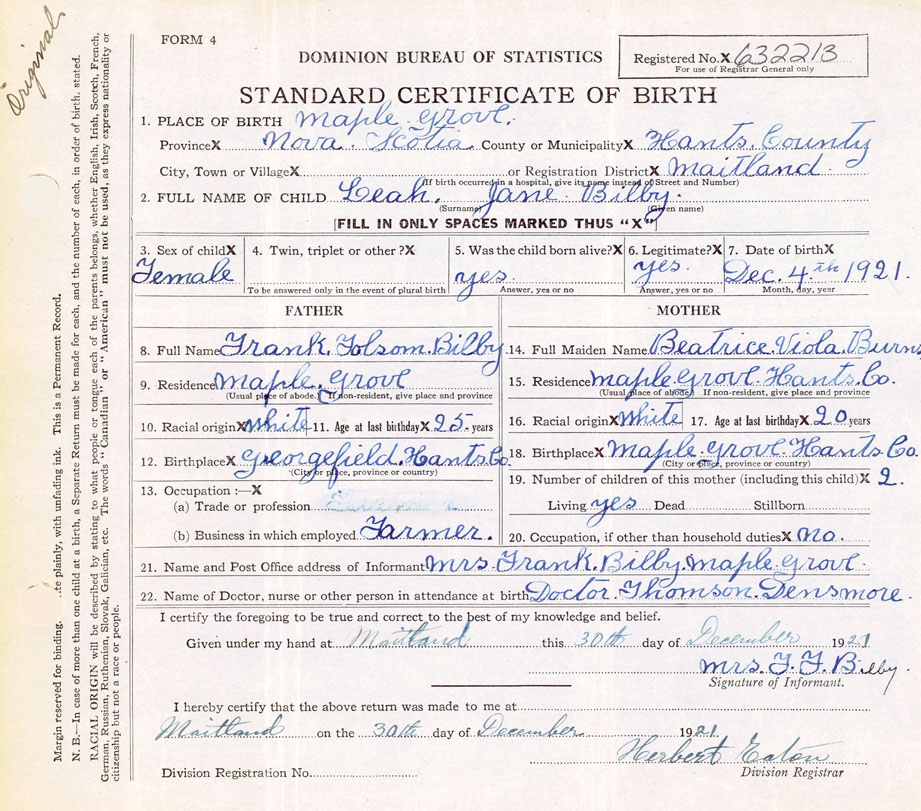 Original
FORM 4
DOMINION BUREAU OF STATISTICS
Registered No. X 632213
For use of Registrar General only
STANDARD CERTIFICATE OF BIRTH
1. PLACE OF BIRTH Maple Grove.
Province X Nova Scotia County or Municipality X Hants County
City, Town or Village X or Registration District X Maitland
(If birth occurred in a hospital, give its name instead of Street and Number)
2. FULL NAME OF CHILD Leah. Jane Bilby.
(Surname) (Given name)
[FILL IN ONLY SPACES MARKED THUS "X"]
3. Sex of child X 4. Twin, triplet or other ? X 5. Was the child born alive? X 6. Legitimate? X 7. Date of birth X
Female yes. yes. Dec. 4th 1921.
To be answered only in the event of plural birth Answer, yes or no Answer, yes or no Month, day, year
FATHER MOTHER
8. Full Name Frank. Folsom. Bilby 14. Full Maiden Name Beatrice Viola Burns
9. Residence Maple Grove 15. Residence Maple Grove Hants Co.
(Usual place of abode. If non-resident, give place and province (Usual place of abode) If non-resident, give place and province
10. Racial origin X white 11. Age at last birthday X 25. years 16. Racial origin X white 17. Age at last birthday X 20 years
12. Birthplace X Georgefield. Hants Co. 18. Birthplace X Maple Grove Hants Co.
(City or place, province or country) (City or place, province or country)
13. Occupation :—X 19. Number of children of this mother (including this child) X 2.
(a) Trade or profession Living yes Dead Stillborn
(b) Business in which employed Farmer. 20. Occupation, if other than household duties X no.
21. Name and Post Office address of Informant Mrs. Frank. Bilby. Maple Grove.
22. Name of Doctor, nurse or other person in attendance at birth Doctor. Thomson. Densmore.
I certify the foregoing to be true and correct to the best of my knowledge and belief.
Given under my hand at Maitland this 30th day of December 1921
Mrs. F. F. Bilby.
Signature of Informant.
I hereby certify that the above return was made to me at
Maitland on the 30th day of December 1921.
Herbert Eaton
Division Registrar
Division Registration No.
Margin reserved for binding. plainly, with unfading ink. This is a Permanent Record,
N. B.—In case of more than one child at a birth, a Separate Return must be made for each, and the number of each, in order of birth, stated.
RACIAL ORIGIN will be described by stating to what people or tongue each of the parents belongs, whether English, Irish, Scotch, French,
German, Russian, Ruthenian, Slovak, Galician, etc. The words "Canadian" or "American" must not be used, as they express nationality or
citizenship but not a race or people.